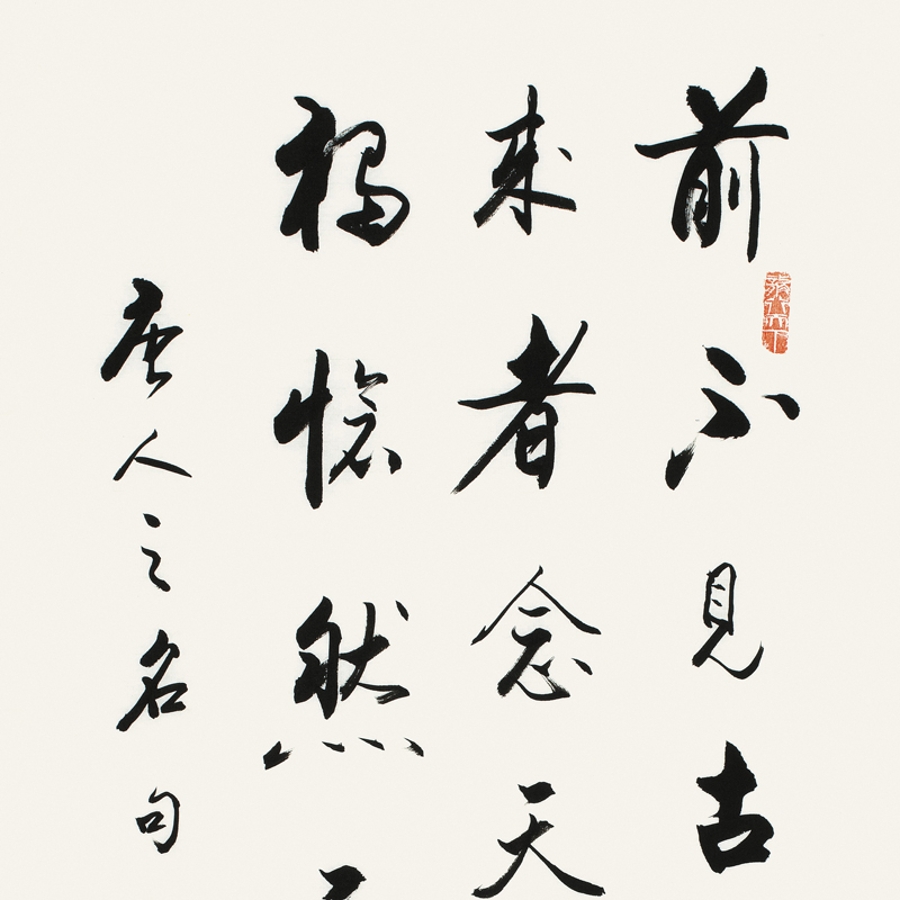 前不見古
来者念天
獨愴然
唐人之名句